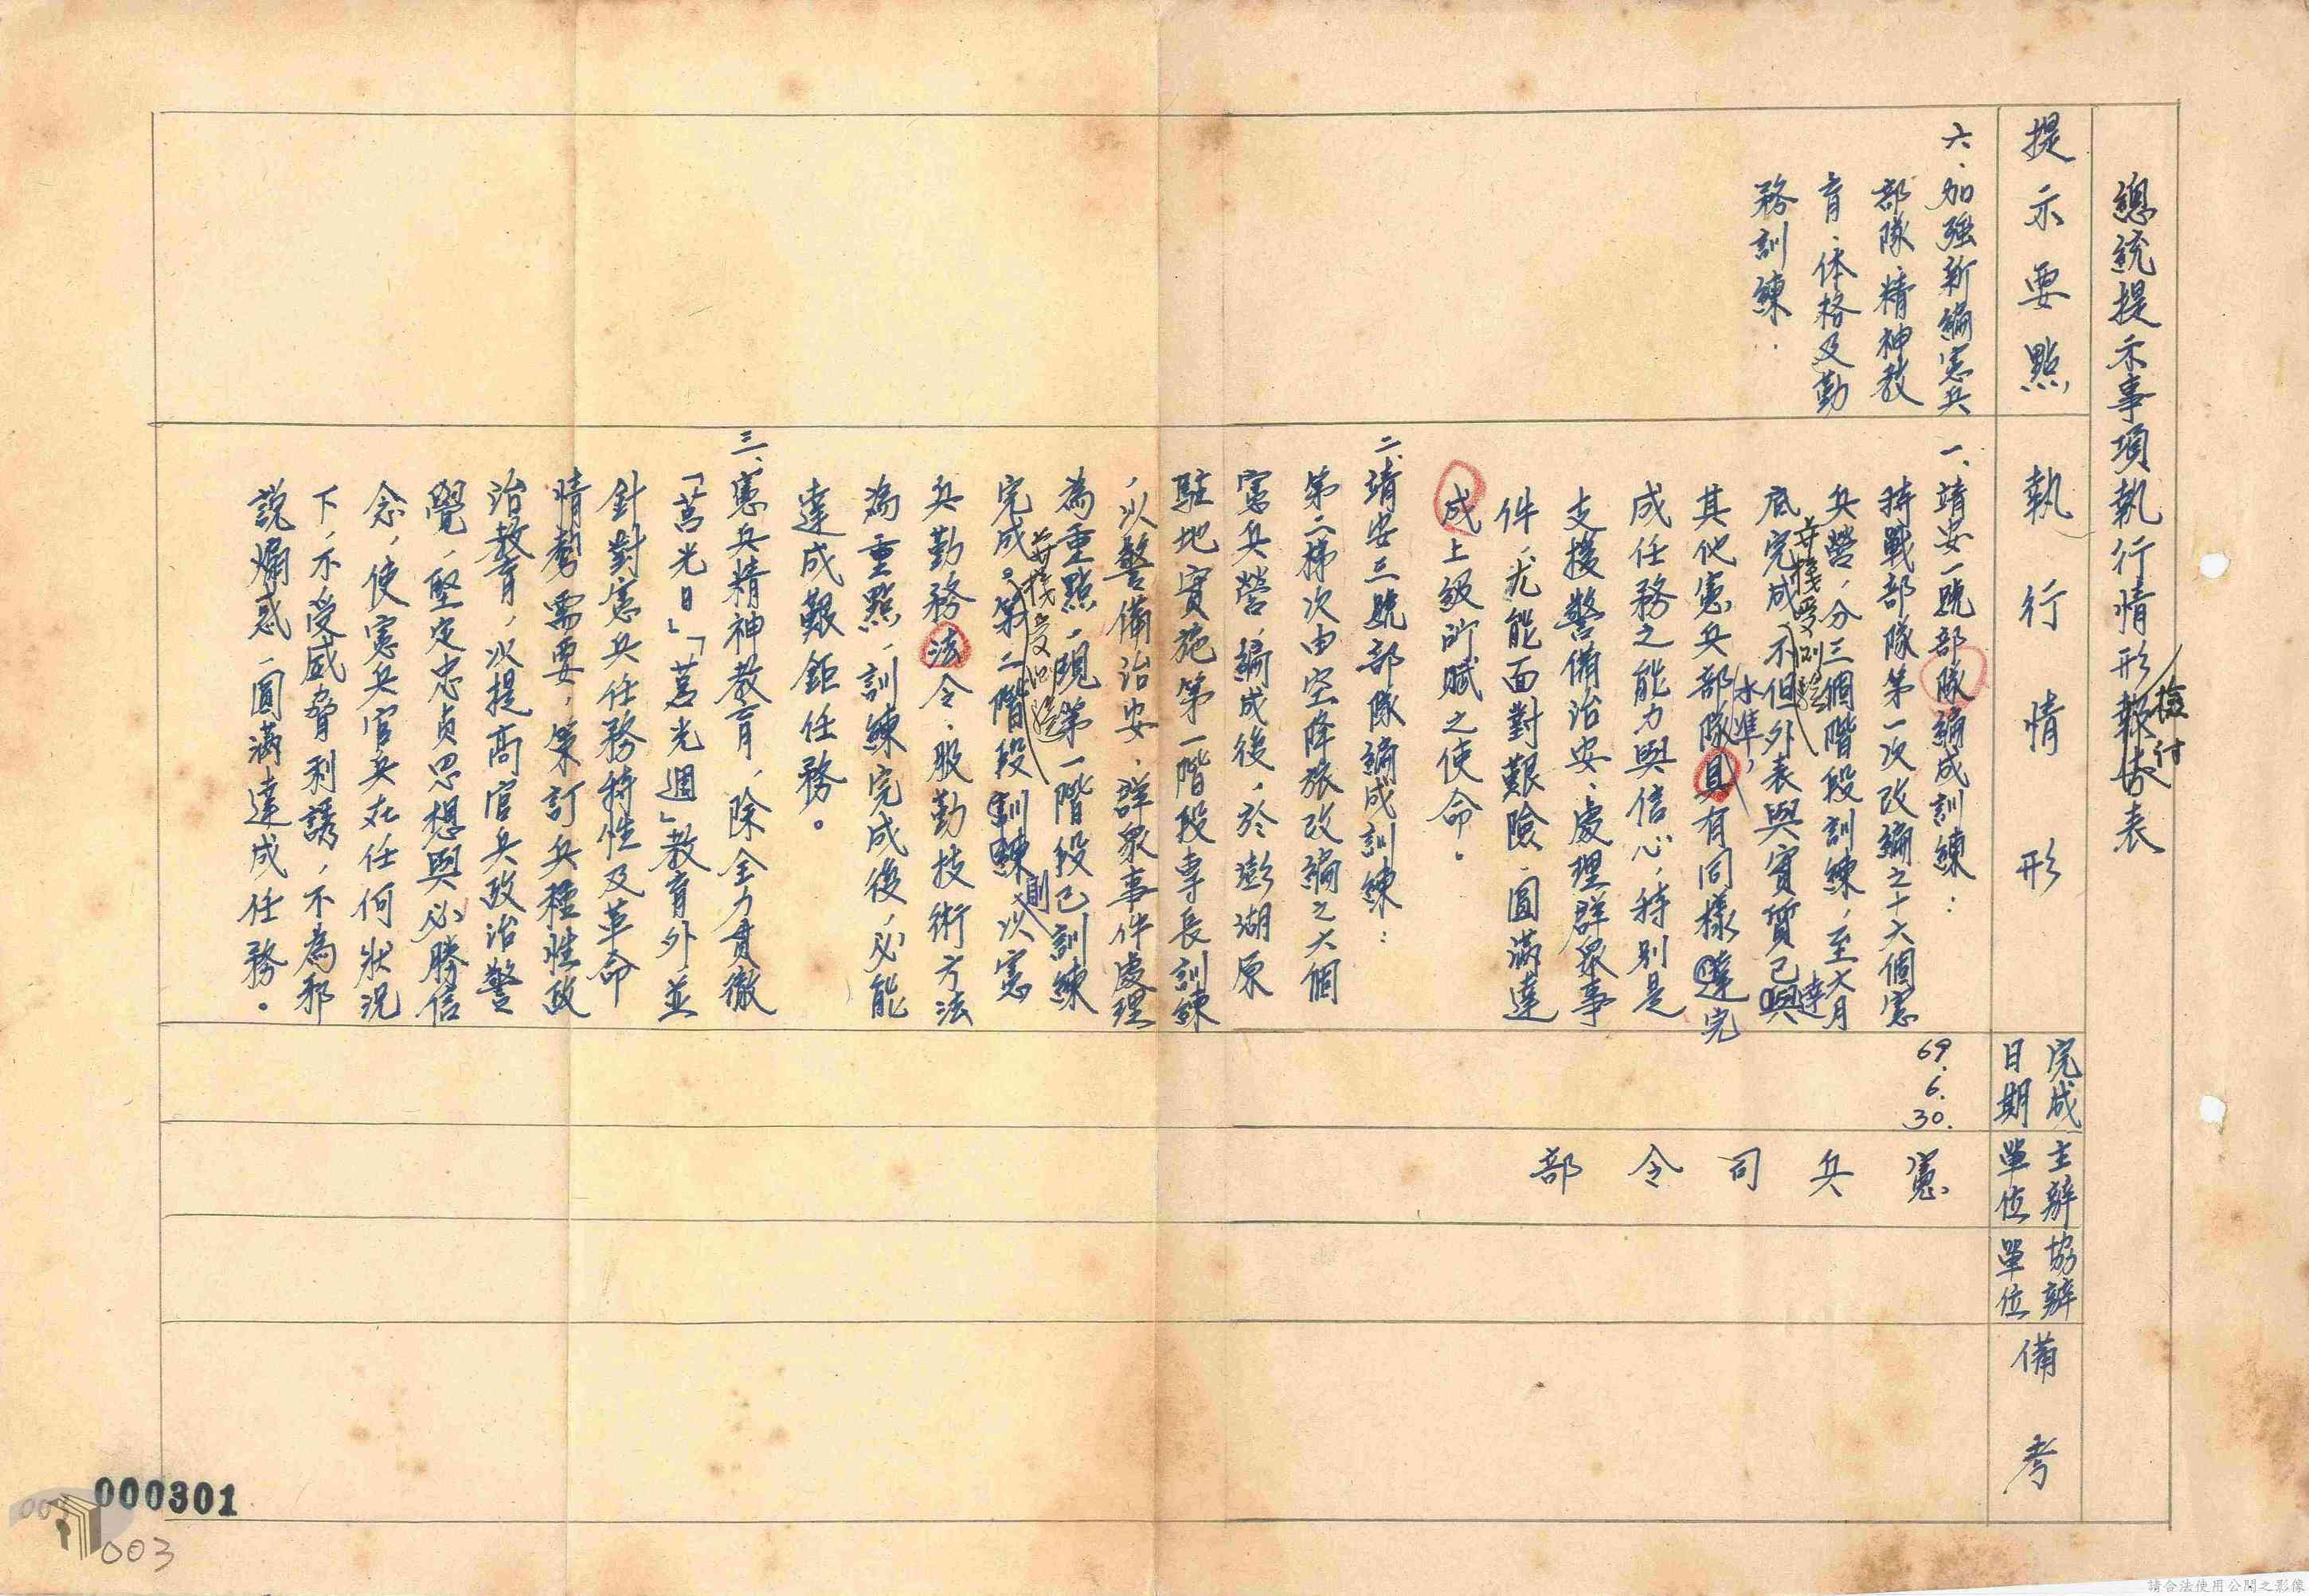 總統提示事項執行情形檢討表
提示要點
執行情形
完成
日期
主辦
單位
協辦
單位
備考
六、加強新編憲兵
部隊、精神教
育、体格及勤
務訓練．
一、靖安一號部隊編成訓練：
特戰部隊第一次改編之十六個憲
兵營，分三個階段訓練，至六月
底完成，並接受測驗
不但外表與實質已達與
其他憲兵部隊具有同樣達完
水準，
成任務之能力與信心，特別是
支援警備治安、處理群眾事
件，尤能面對艱險，圓滿達
成上級所賦之使命。
二、靖安三號部隊編成訓練：
第二梯次由空降旅改編之六個
憲兵營，編成後，於澎湖原
駐地實施第一階段專長訓練
，以警備治安、群眾事件處理
為重點，現第一階段已訓練
完成。第二階段訓練則以憲
並接受
兵勤務法令、服勤技術方法
為重點，訓練完成後，必能
達成艱鉅任務。
三、憲兵精神教育，除全力貫徹
「莒光日」「莒光週」教育外，並
針對憲兵任務特性及革命
情勢需要，策訂兵種性政
治教育，以提高官兵政治警
覺，堅定忠貞思想與必勝信
念，使憲兵官兵在任何狀況
下，不受威脅利誘，不為邪
說煽惑，圓滿達成任務。
69.
6.
30.
憲兵司令部
000301
003
請合法使用公開之影像